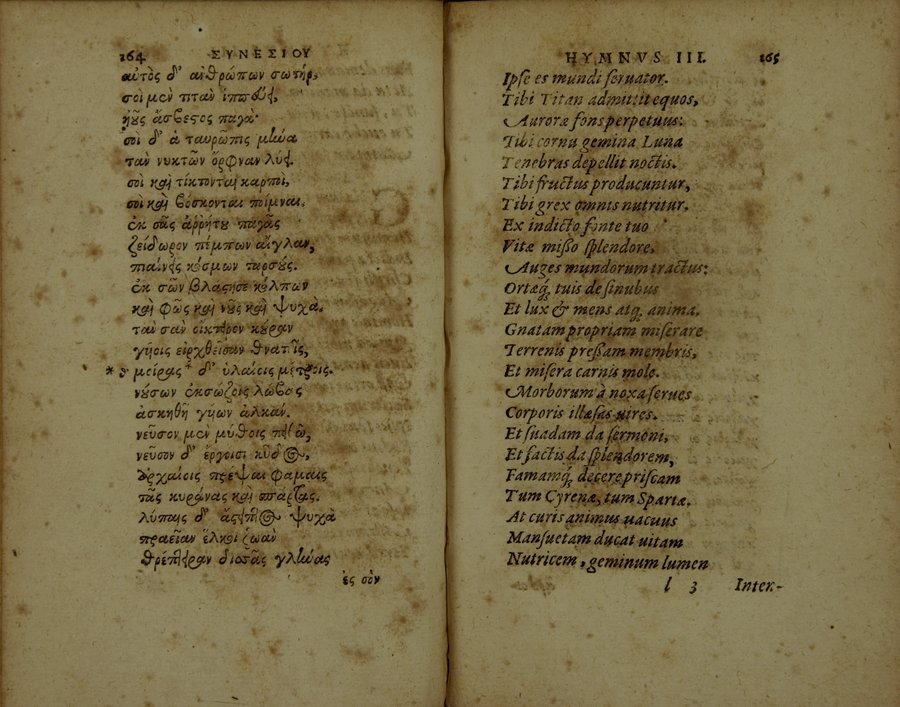 164 ΣΥΝΕΣΙΟΥ
αὐτὸς δ' αἰθρώπων σωτήρ,
σοὶ μὲν πτὰν ἱππεύει,
ἠοῦς ἄσβεστος παγά·
σοὶ δ' ἁ ταυρῶπις μήνα
τὰν νυκτῶν ὄρφναν λύει.
σοὶ καὶ τίκτονται καρποὶ,
σοὶ καὶ βόσκονται ποίμναι.
ἐκ σᾶς ἀῤῥήτου παγᾶς
ζείδωρον πέμπων αἴγλαν,
πιαίνεις κόσμων ταρσούς.
ἐκ σῶν βλάστησε κόλπων
καὶ φῶς καὶ νοῦς καὶ ψυχά.
τὰν σὰν οἴκτειρον κούραν
γυίοις εἰρχθεῖσαν θνατοῖς,
μοίρας δ' ὑλαίοις μέτροις.
νούσων ἐκσώζοις λώβας
ἀσκηθῆ γυίων ἀλκάν.
νεῦσον μὲν μύθοις πειθὼ,
νεῦσον δ' ἔργοισι κῦδος,
ἀρχαίοις πρέψαι φάμαις
τᾶς κυράνας καὶ σπάρτας.
λύπαις δ' ἄστειπτος ψυχὰ
πραεῖαν ἕλκοι ζωὰν
θρέπτειραν δισσᾶς γλήνας
ἐς σὸν
HYMNVS III. 165
Ipse es mundi seruator.
Tibi Titan admittit equos,
Auroræ fons perpetuus:
Tibi cornu gemina Luna
Tenebras depellit noctis.
Tibi fructus producuntur,
Tibi grex omnis nutritur.
Ex indicto fonte tuo
Vitæ misso splendore,
Auges mundorum tractus:
Ortæq; tuis de sinubus
Et lux & mens atq; anima.
Gnatam propriam miserare
Terrenis pressam membris,
Et misera carnis mole.
Morborum à noxa serues
Corporis illæsas uires.
Et suadam da sermoni,
Et factis da splendorem,
Famamq; decere priscam
Tum Cyrenæ, tum Spartæ.
At curis animus uacuus
Mansuetam ducat uitam
Nutricem, geminum lumen
l 3 Inter-